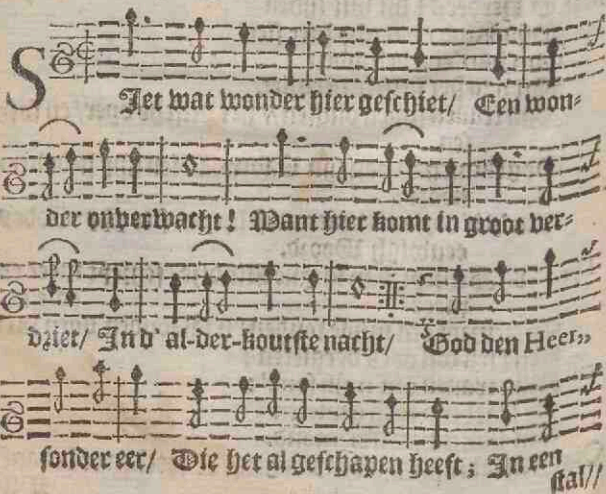 SIet wat wonder hier geschiet/ Een won-
der onverwacht! Want hier komt in groot ver-
dziet/ In d' al-der-koutste nacht/ God den Heer„
sonder eer/ Die het al geschapen heeft; In een
stal//